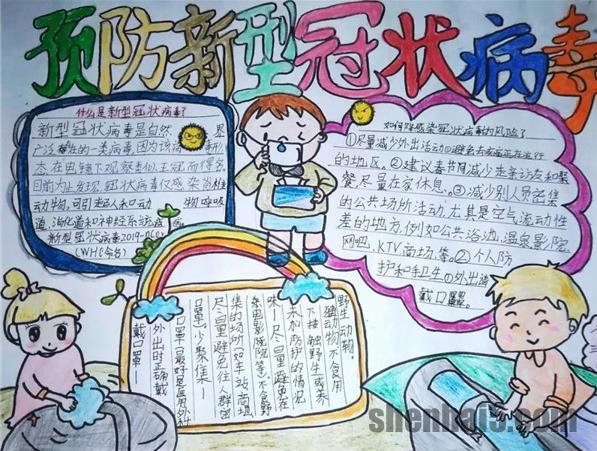 预防新型冠状病毒
什么是新型冠状病毒?
新型冠状病毒是自然界
广泛
的一类病毒因为该病毒形
态在电镜下观察类似王冠而得名
目前为止发现,冠状病毒仅感染脊椎
动物,可引起人和动物呼吸
道、消化道和神经系统疾病
新型冠状病毒2019-nCoV
(WHO命名)
如何降感染冠状病毒的风险?
①尽量减少外出活动
避免去疫症正在流行
的地区。②建议春节减少走亲访友和聚
餐尽量在家休息。③减少到人员密集
的公共场所活动,尤其是空气流动性
差的地方,例如公共浴池,温泉影院
网吧,KTV商场,等。②个人防
护和手卫生の外出请
戴口罩。
野生动物。
下接触野生或养
未加防护的情况
集的场所如车站商场
尺尽量避免往人群密
口罩少聚集一
口罩最好是医用外科
外出时正确戴
戴口罩一
shenhaIs.com